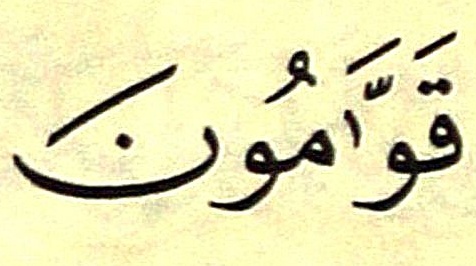 قَوَّٰمُونَ